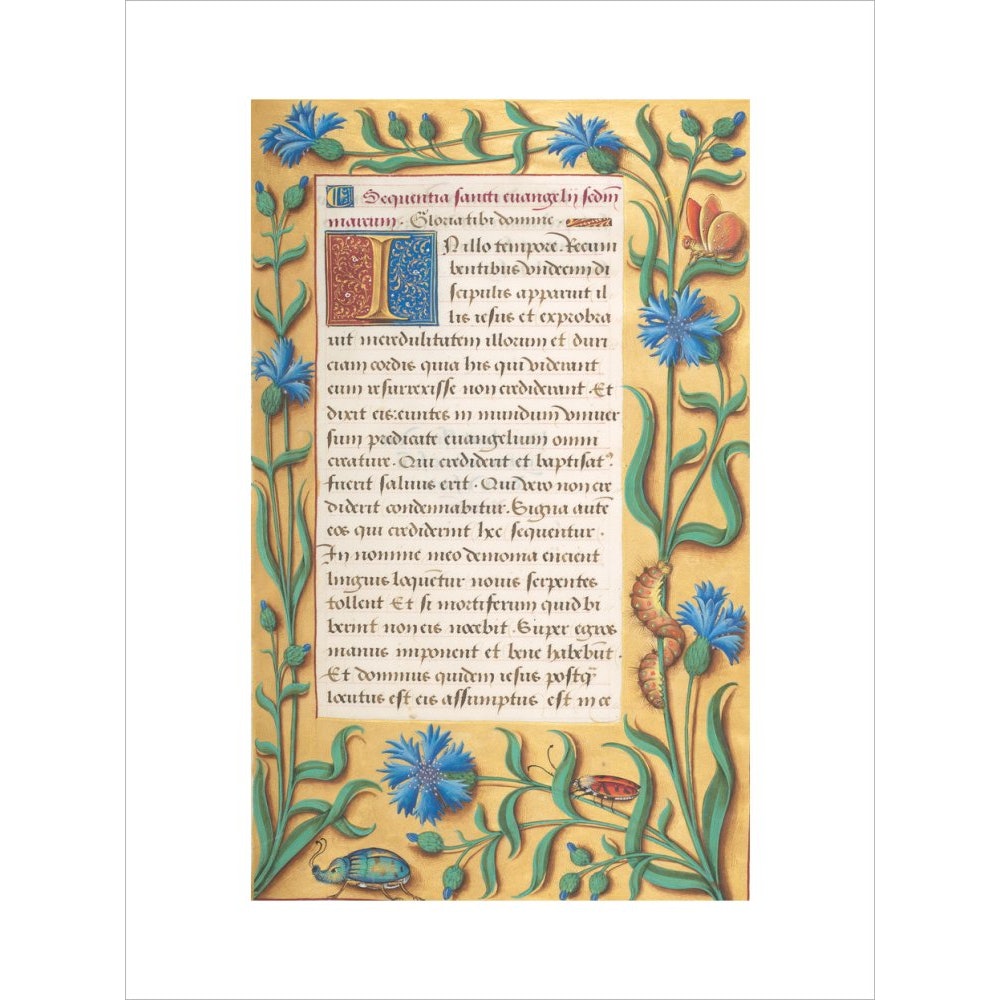 Sequentia sancti euangelij secdm
marcum. Gloria tibi domine.
IN illo tempore. Recum
bentibus vndecim di
scipulis apparuit il
lis iesus et exprobra
uit incredulitatem illorum et duri
ciam cordis quia his qui viderant
eum resurrexisse non crediderant. Et
dixit eis: euntes in mundum vniuer
sum predicate euangelium omni
creature. Qui crediderit et baptisat9
fuerit saluus erit. Qui vero non cre
diderit condemnabitur. Signa autē
eos qui crediderint hec sequentur.
In nomine meo demonia eiicient
linguis loquētur nouis serpentes
tollent Et si mortiferum quid bi
berint non eis nocebit. Super egros
manus imponent et bene habebūt.
Et dominus quidem iesus postq̄
locutus est eis assumptus est in ce